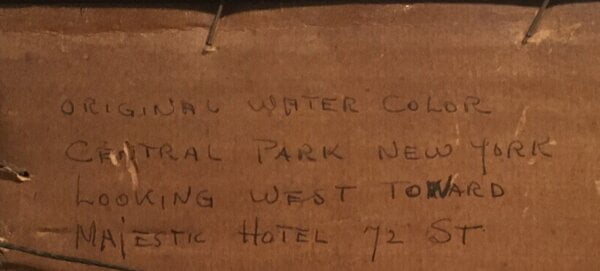 ORIGINAL WATER COLOR
CENTRAL PARK NEW YORK
LOOKING WEST TOWARD
MAJESTIC HOTEL 72 ST